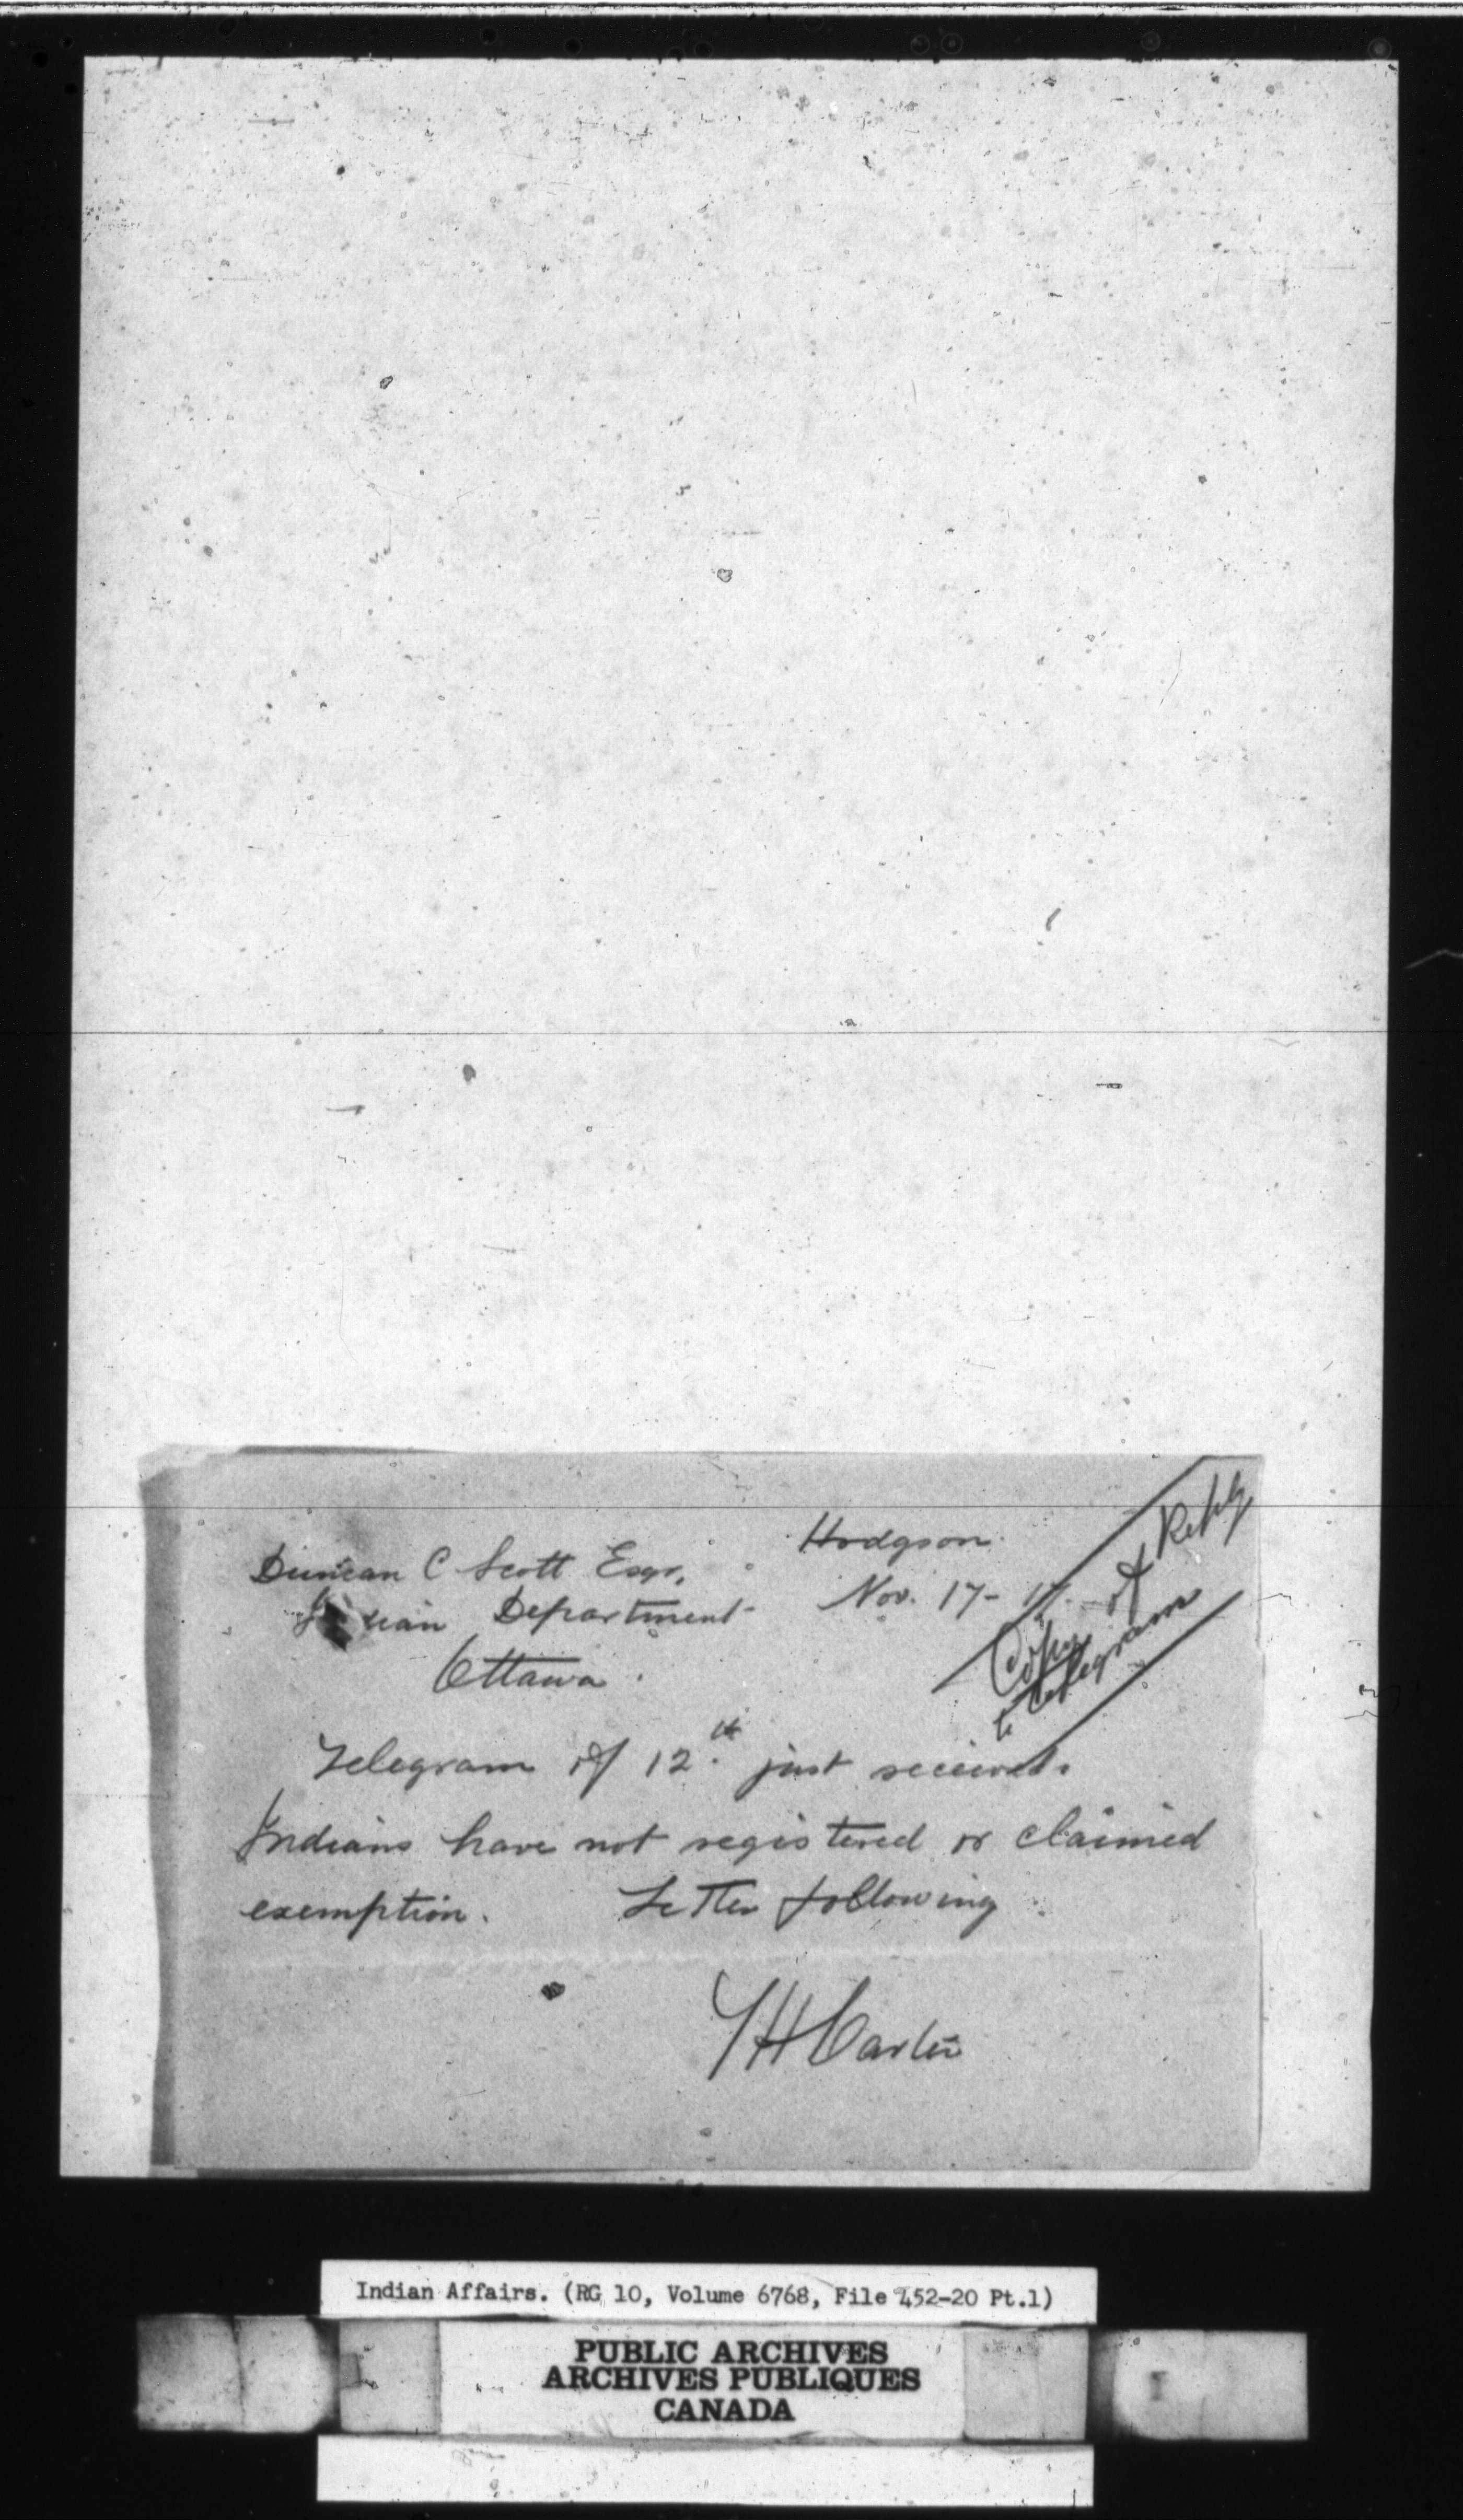 Hodgson.
Nov. 17-17.
Copy of Reply
to telegram
Duncan C Scott Esqr.
Indian Department
Ottawa.
Telegram of 12th just received.
Indians have not registered or claimed
exemption. Letter following.
T H Carter
Indian Affairs. (RG 10, Volume 6768, File 452-20 Pt.1)
PUBLIC ARCHIVES
ARCHIVES PUBLIQUES
CANADA